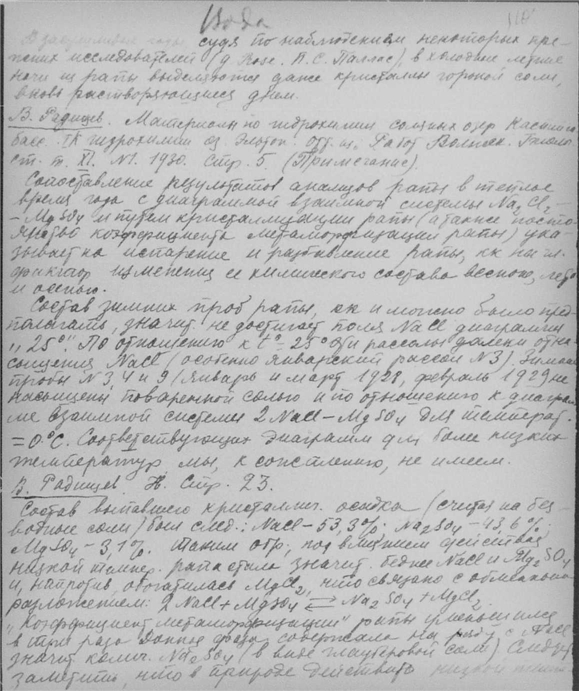 Вода
судя по наблюдениям некоторых преж-
них исследователей (Г. Розе. П.С. Паллас), в холодные летние
ночи из рапы выделяются даже кристаллы горькой соли,
вновь растворяющиеся днем.
В. Радищев. Материалы по гидрохимии соляных озер Каспийск.
басс. IX гидрохимия оз. Эльтон. Отт. из Работ Волжск. Биолог.
ст. т. XI. N1. 1930. Стр. 5 (Примечание).
Сопоставление результатов анализов рапы в теплое
время года с диаграммой взаимной системы Na2Cl2-
-MgSO4 и путем кристаллизации рапы (а также посто-
янство коэффициента метаморфизации рапы) ука-
зывает на испарение и разбавление рапы, как на
фактор изменения ее химического состава весною, лето
и осенью.
Состав зимних проб рапы, как и можно было пред-
полагать, значит. не достигает поля NaCl диаграммы
"25°". По отношению к t°- 25° эти рассолы далеки от на-
сыщения NaCl (особенно январский рассол N3). Зимние
пробы N 3, 4 и 9 (январь и март 1928, февраль 1929) не
насыщены поваренной солью и по отношению к диаграм-
ме взаимной системы 2 NaCl - MgSO4 для температ.
= 0°C. Соответствующих диаграмм для более низких
температур мы, к сожалению, не имеем.
В. Радищев. Стр. 23.
Состав выпавшего кристаллич. осадка (считая на без-
водные соли) был след.: NaCl - 53,3%; Na2SO4 - 43,6%;
MgSO4 - 3,1%. Таким обр., под влиянием действия
низкой темпер. рапа стала значит. беднее NaCl и Mg2SO4
и, напротив, обогатилась MgCl2, что связано с обменным
разложением: 2 NaCl + MgSO4 ⇄ Na2SO4 + MgCl2.
"Коэффициент метаморфизации" рапы уменьшился
в три раза. Донная фаза содержала на ряду с NaCl
значит. колич. Na2SO4 (в виде глауберовой соли). Следует
заметить, что в природе действие низкой темп